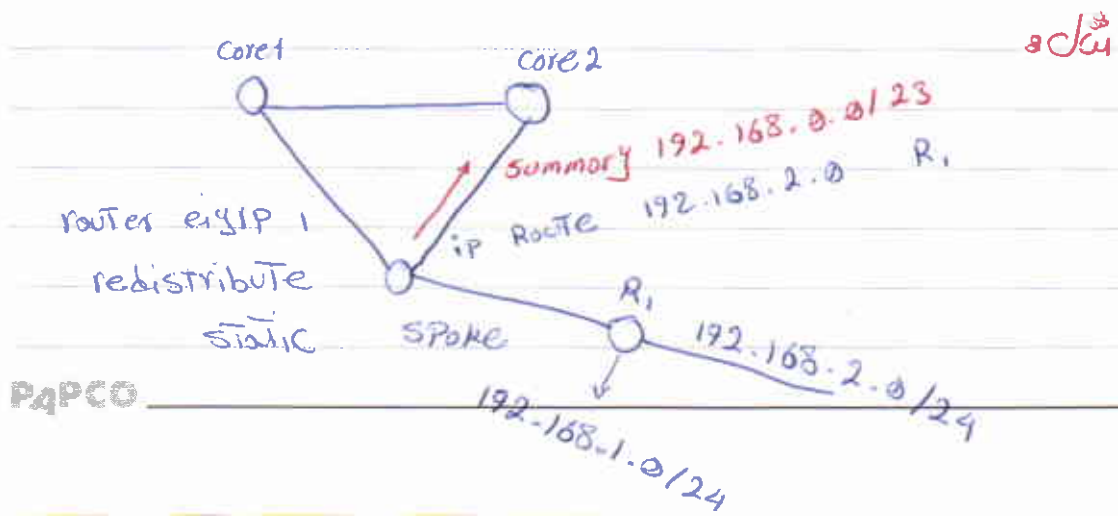 شکل 8
Core1
Core2
Summary 192.168.0.0/23
ip Route 192.168.2.0 R1
router eigrp 1
redistribute
static
SPoke
R1
192.168.2.0/24
192.168.1.0/24
PAPCO